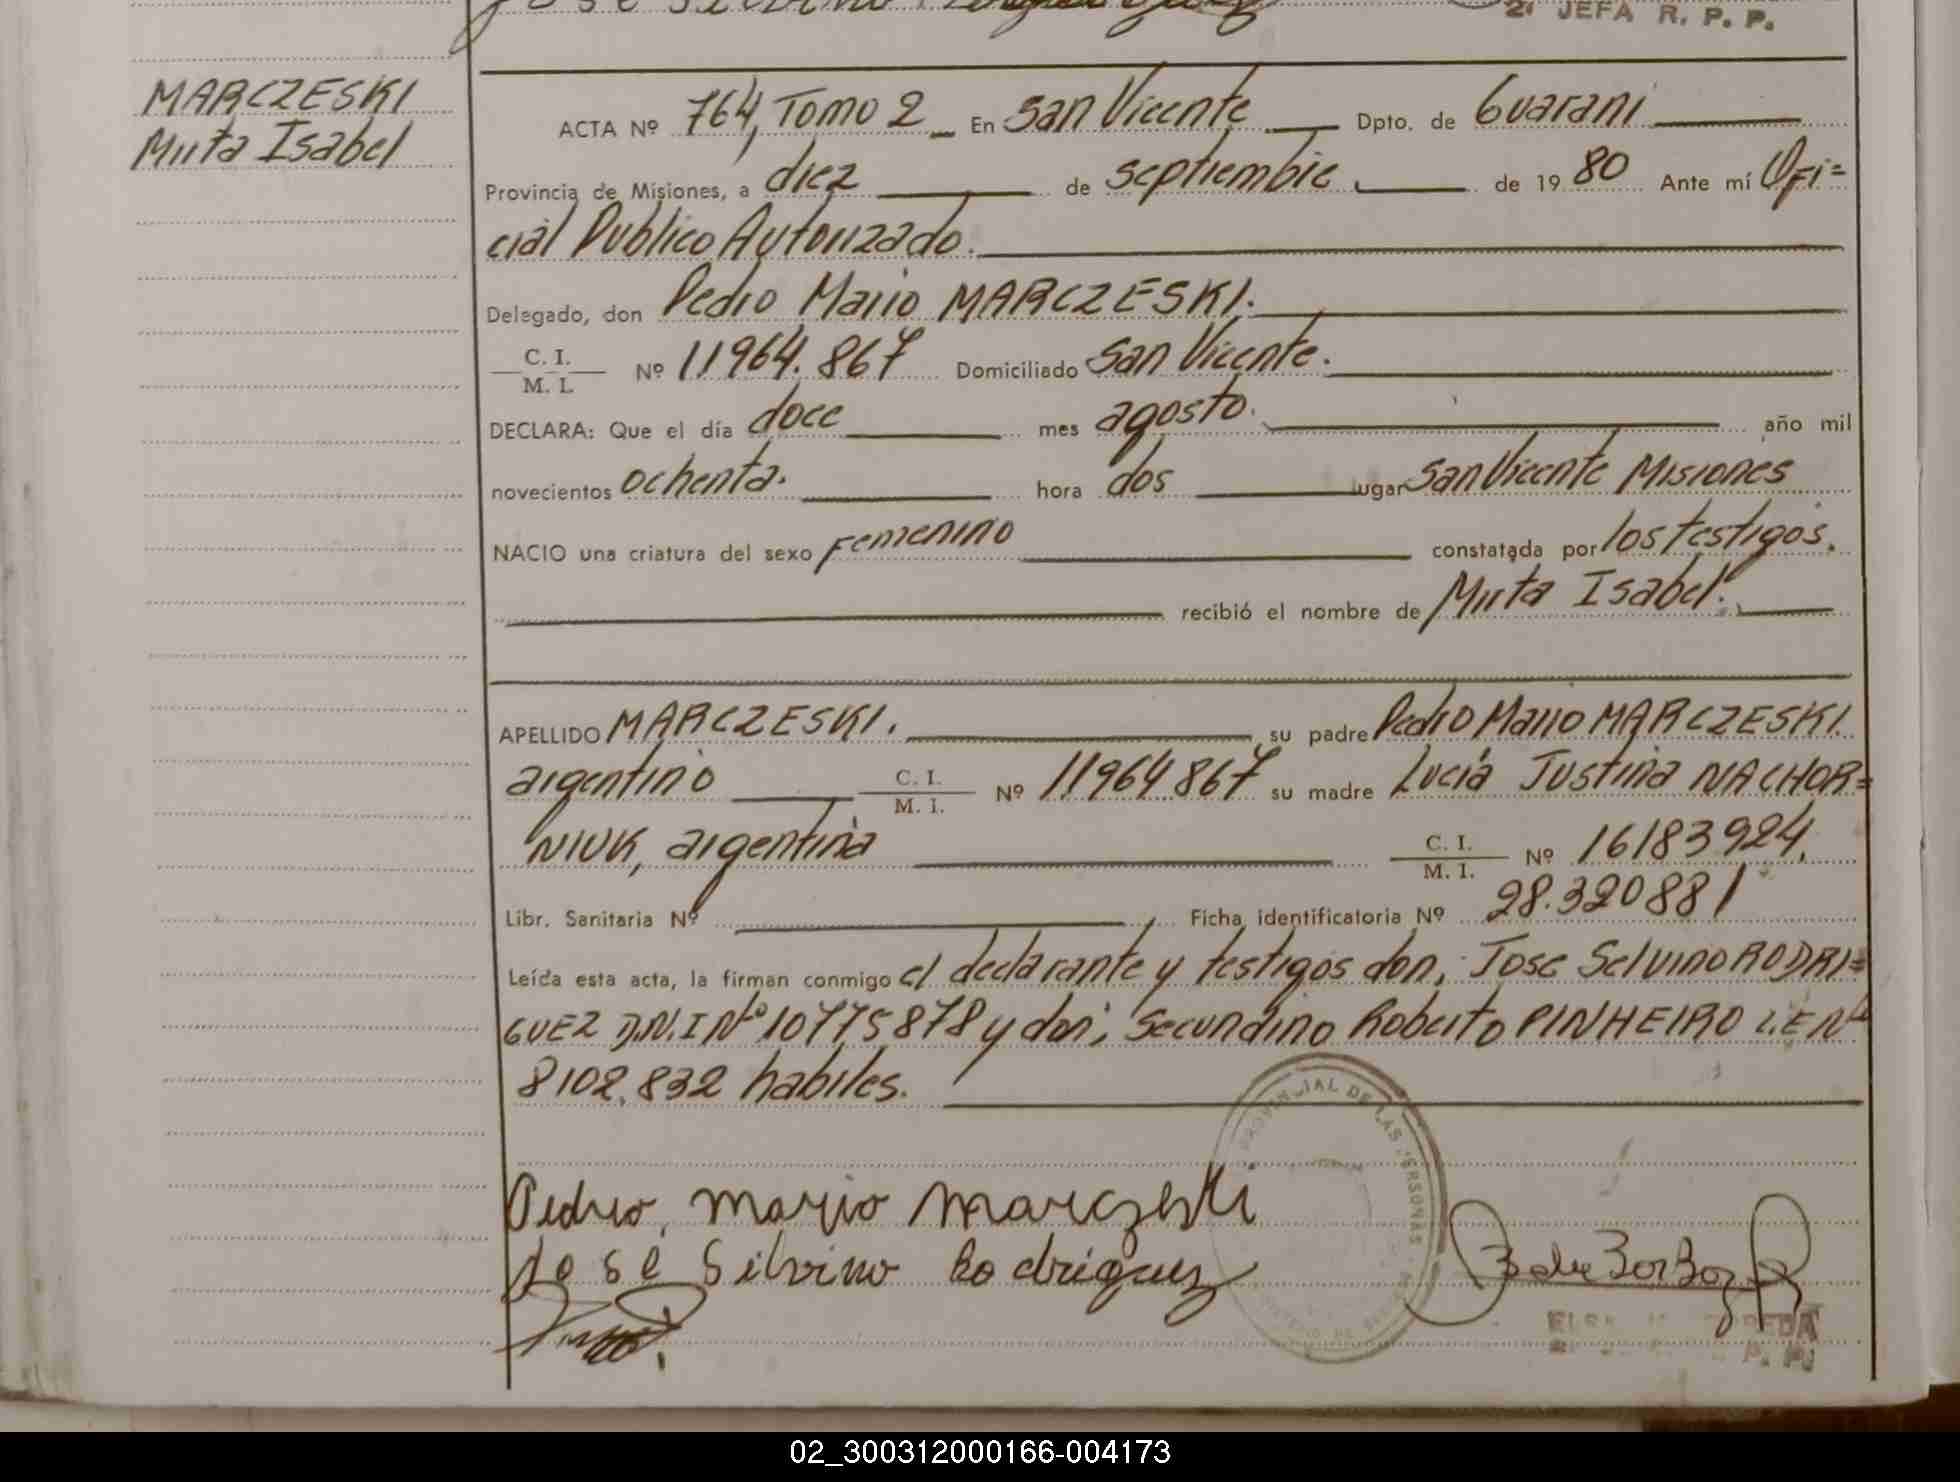 José Silvino Rodriguez
2ª JEFA R. P. P.
MARCZESKI
Mirta Isabel
ACTA Nº 764, Tomo 2 En San Vicente Dpto. de Guarani
Provincia de Misiones, a diez de septiembre de 1980 Ante mí Ofi=
cial Publico Autorizado.
Delegado, don Pedro Mario MARCZESKI.
C. I. / M. I. Nº 11964.867 Domiciliado San Vicente.
DECLARA: Que el día doce mes agosto. año mil
novecientos ochenta. hora dos lugar San Vicente Misiones
NACIO una criatura del sexo Femenino constatada por los testigos.
recibió el nombre de Mirta Isabel.
APELLIDO MARCZESKI. su padre Pedro Mario MARCZESKI.
argentino C. I. / M. I. Nº 11964867 su madre Lucia Justina NACHOR=
NIUK, argentina C. I. / M. I. Nº 16183924,
Libr. Sanitaria Nº Ficha identificatoria Nº 28.320881
Leída esta acta, la firman conmigo el declarante y testigos don, Jose Selvino RODRI=
GUEZ D.N.I Nº 10775878 y don, Secundino Roberto PINHEIRO L.E Nº
8102.832 habiles.
PROVINCIAL DE LAS PERSONAS
Pedro Mario Marczeski
José Silvino Rodriguez
ELSA
P. P.
02_300312000166-004173